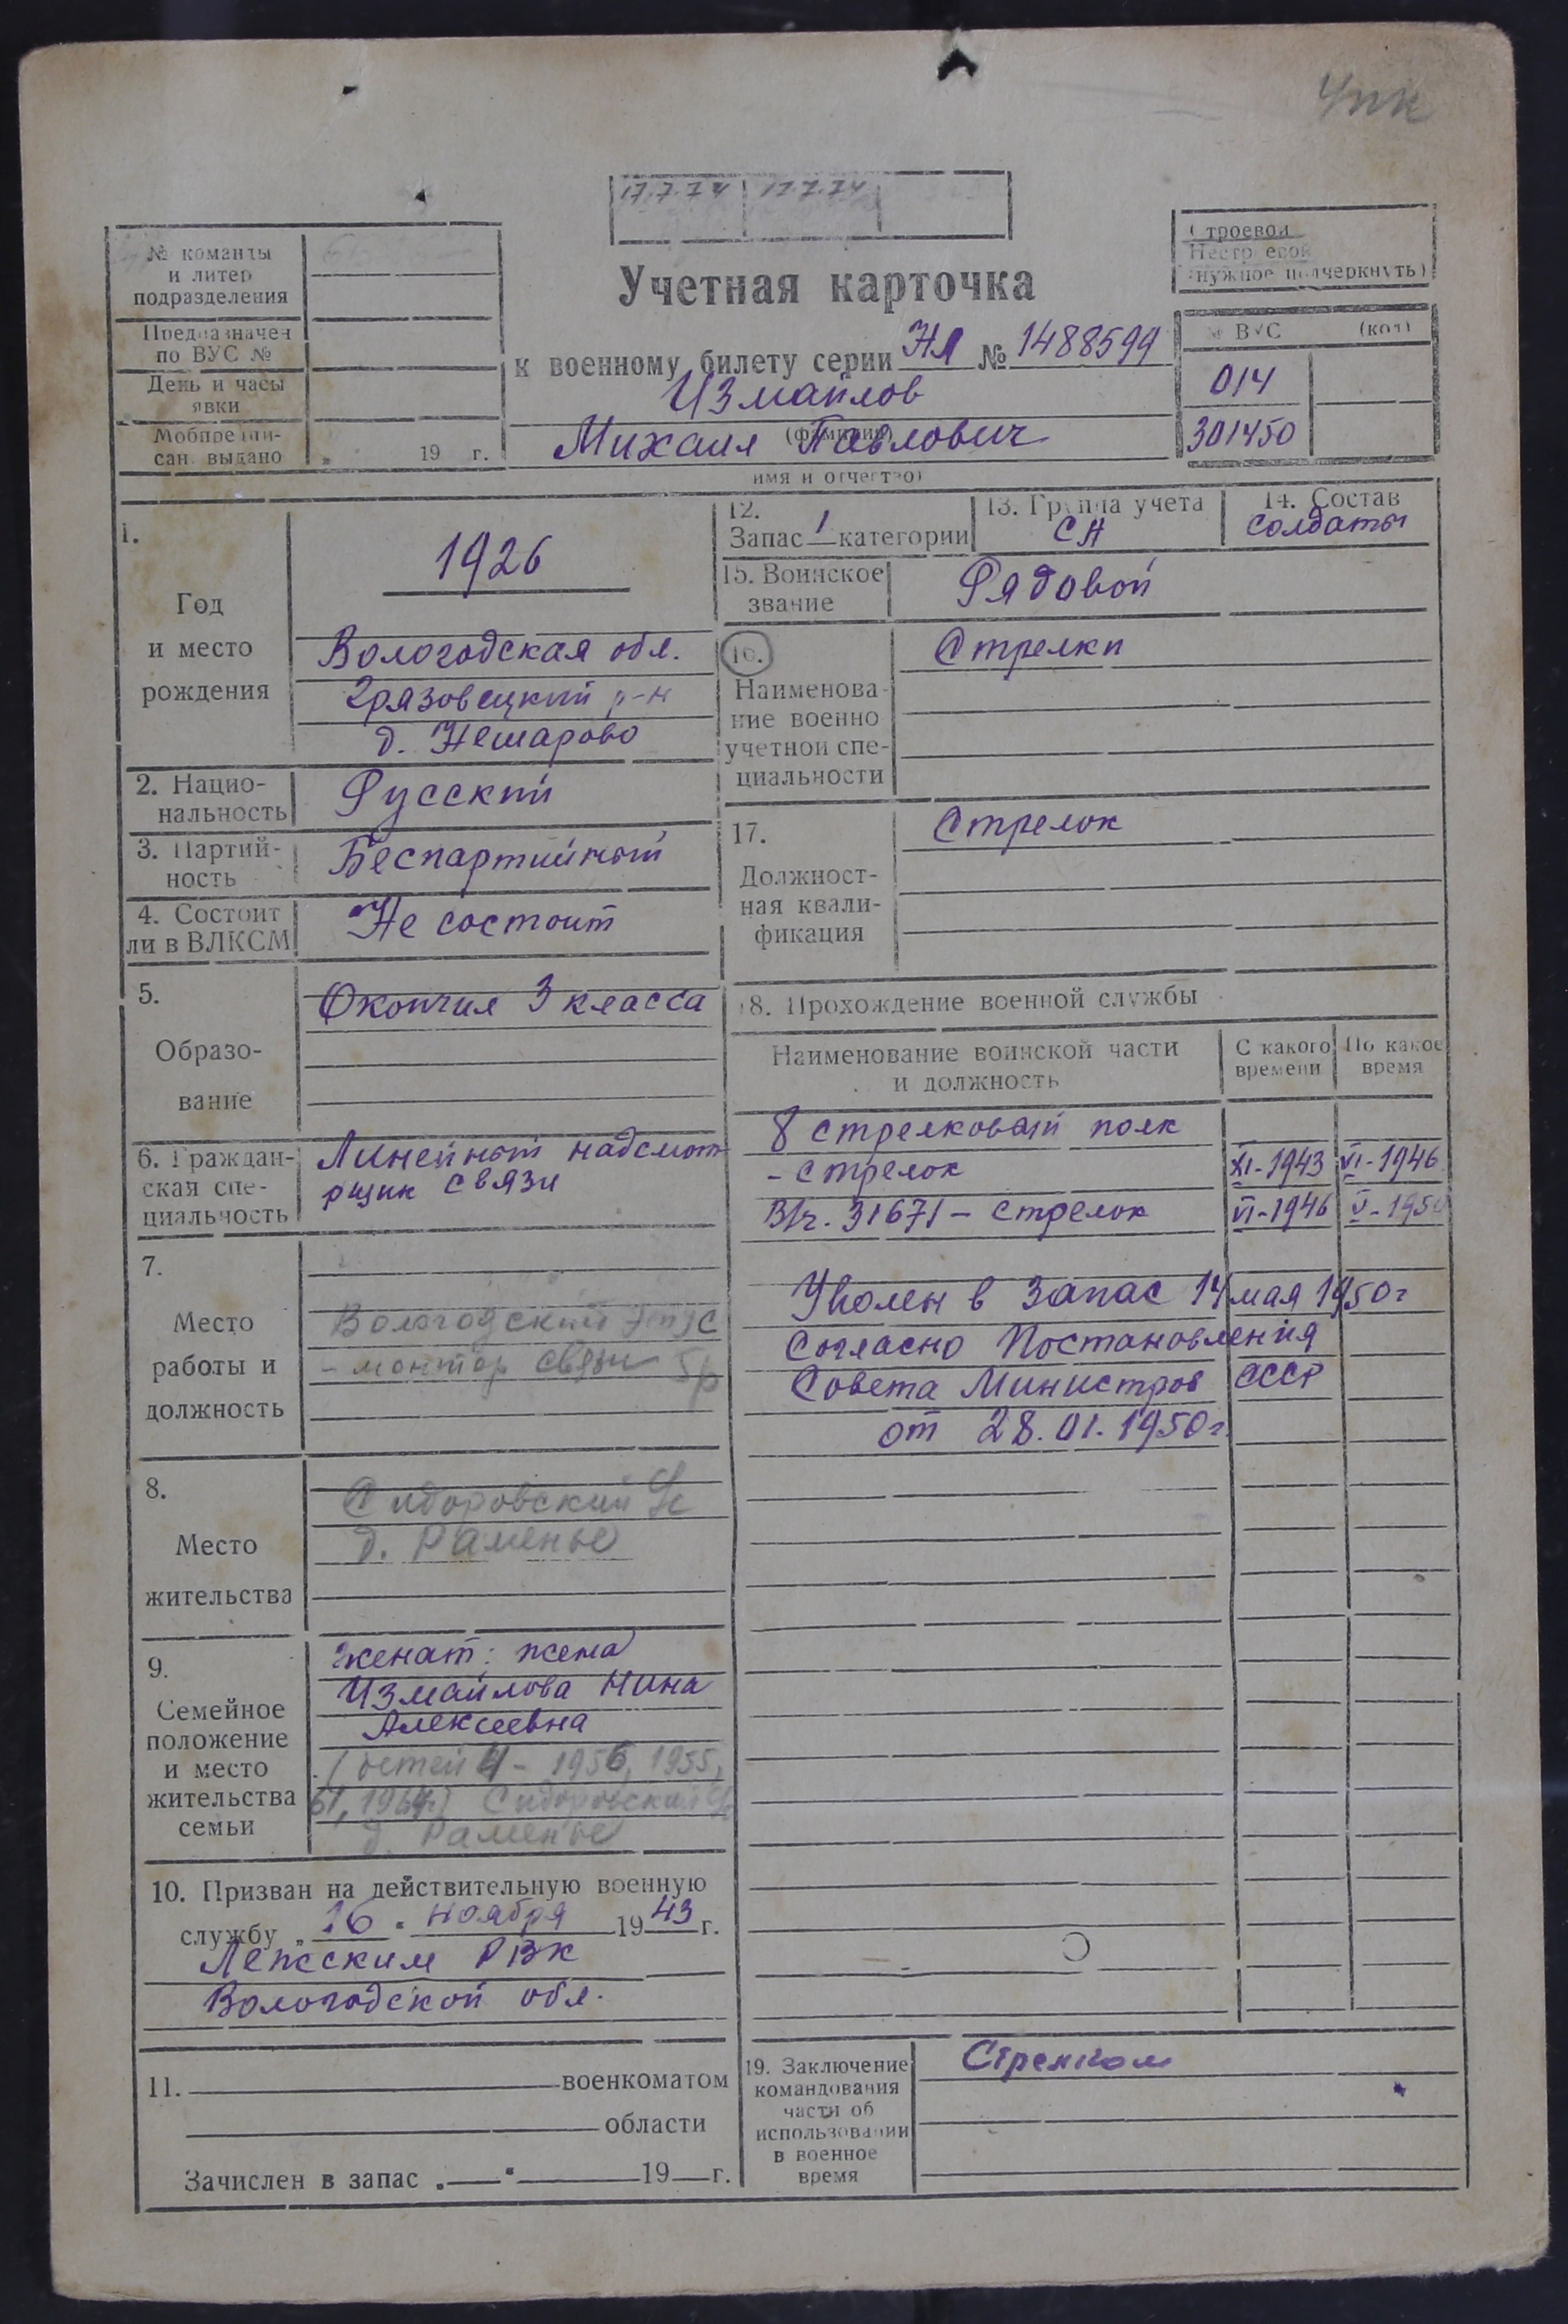 Упк
17.7.74 17.7.74
№ команды
и литер
подразделения
Предназначен
по ВУС №
День и часы
явки
Мобпредпи-
сан. выдано " 19 г.
Учетная карточка
к военному билету серии НЯ № 1488599
Измайлов
(фамилия)
Михаил Павлович
имя и отчество)
Строевой
Нестроевой
(нужное подчеркнуть)
№ ВУС (код)
014
301450
1.
Год
и место
рождения
1926
Вологодская обл.
Грязовецкий р-н
д. Нешарово
2. Нацио-
нальность
Русский
3. Партий-
ность
Беспартийный
4. Состоит
ли в ВЛКСМ
Не состоит
5.
Образо-
вание
Окончил 3 класса
6. Граждан-
ская спе-
циальность
Линейный надсмот
рщик связи
7.
Место
работы и
должность
Вологодский этус
- монтер связи 5р
8.
Место
жительства
Сидоровский с/с
д. Раменье
9.
Семейное
положение
и место
жительства
семьи
женат: жена
Измайлова Нина
Алексеевна
(детей 4 - 1956, 1955,
61, 1964) Сидоровский с/с
д. Раменье
10. Призван на действительную военную
службу „ 16 " ноября 1943 г.
Лежским РВК
Вологодской обл.
11. военкоматом
области
Зачислен в запас „ " 19 г.
12.
Запас 1 категории
13. Группа учета
СА
14. Состав
солдаты
15. Воинское
звание
Рядовой
16.
Наименова-
ние военно
учетной спе-
циальности
Стрелки
17.
Должност-
ная квали-
фикация
Стрелок
18. Прохождение военной службы
Наименование воинской части
и должность
С какого
времени
По какое
время
8 стрелковый полк
- стрелок XI-1943 VI-1946
В/ч. 31671 - стрелок VI-1946 V-1950
Уволен в запас 14 мая 1950г
Согласно Постановления
Совета Министров СССР
от 28.01.1950г.
19. Заключение
командования
части об
использовании
в военное
время
Стрелком